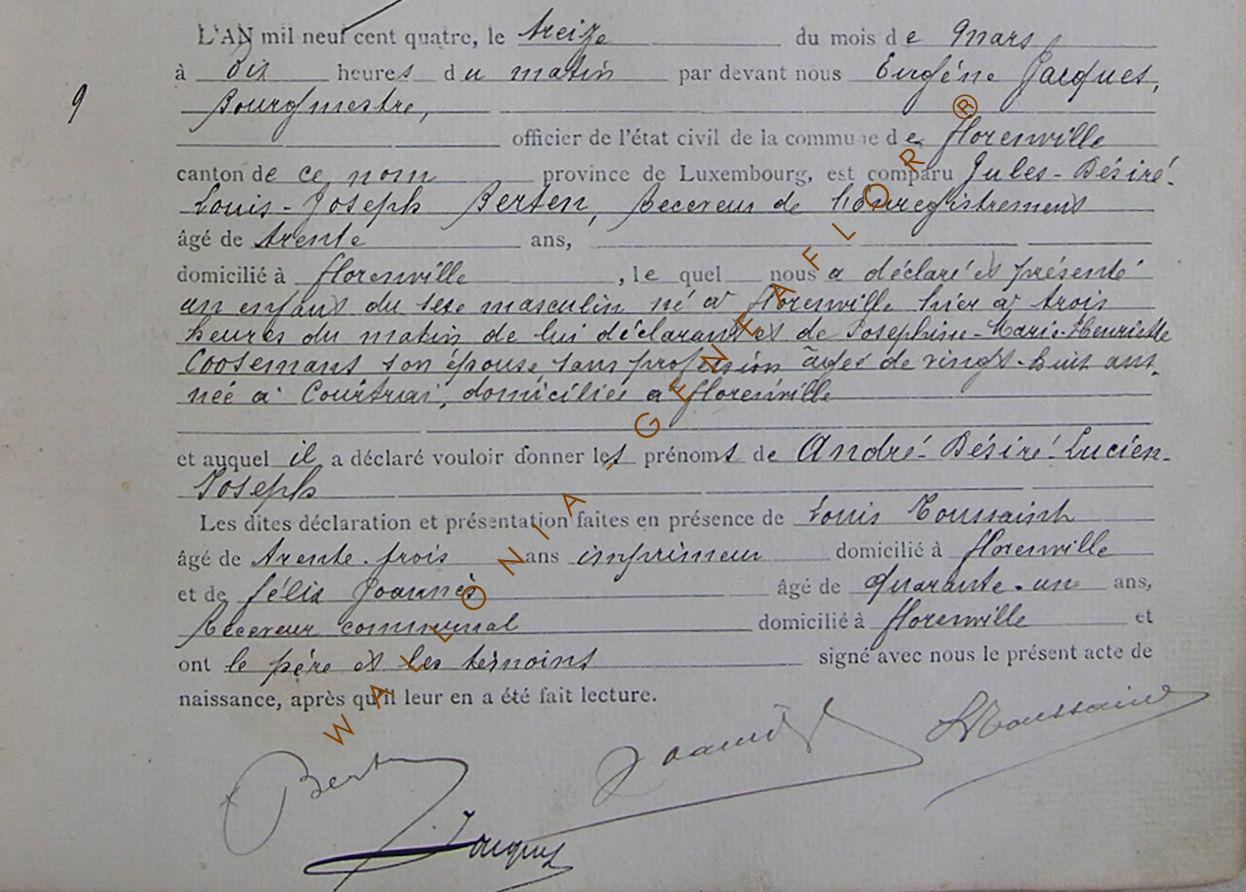 L'AN mil neuf cent quatre, le treize du mois de Mars
à Dix heures du matin par devant nous Eugène Jacques,
9
Bourgmestre,
officier de l'état civil de la commune de Florenville
canton de ce nom province de Luxembourg, est comparu Jules-Désiré-
Louis-Joseph Berten, Receveur de l'enregistrement
âgé de trente ans,
domicilié à Florenville, lequel nous a déclaré et présenté
un enfant du sexe masculin né à Florenville hier à trois
heures du matin de lui déclarant et de Joséphine-Marie-Henriette
Coosemans son épouse sans profession âgée de vingt-huit ans,
née à Courtrai, domiciliée à Florenville
et auquel il a déclaré vouloir donner les prénoms de André-Désiré-Lucien-
Joseph
Les dites déclaration et présentation faites en présence de Louis Toussaint
âgé de trente-trois ans imprimeur domicilié à Florenville
et de Félix Joannès âgé de quarante-un ans,
Receveur communal domicilié à Florenville et
ont le père et les témoins signé avec nous le présent acte de
naissance, après qu'il leur en a été fait lecture.
Berten Joannès LToussaint
Jacques
WALLONIA - GENEAFLOR ®